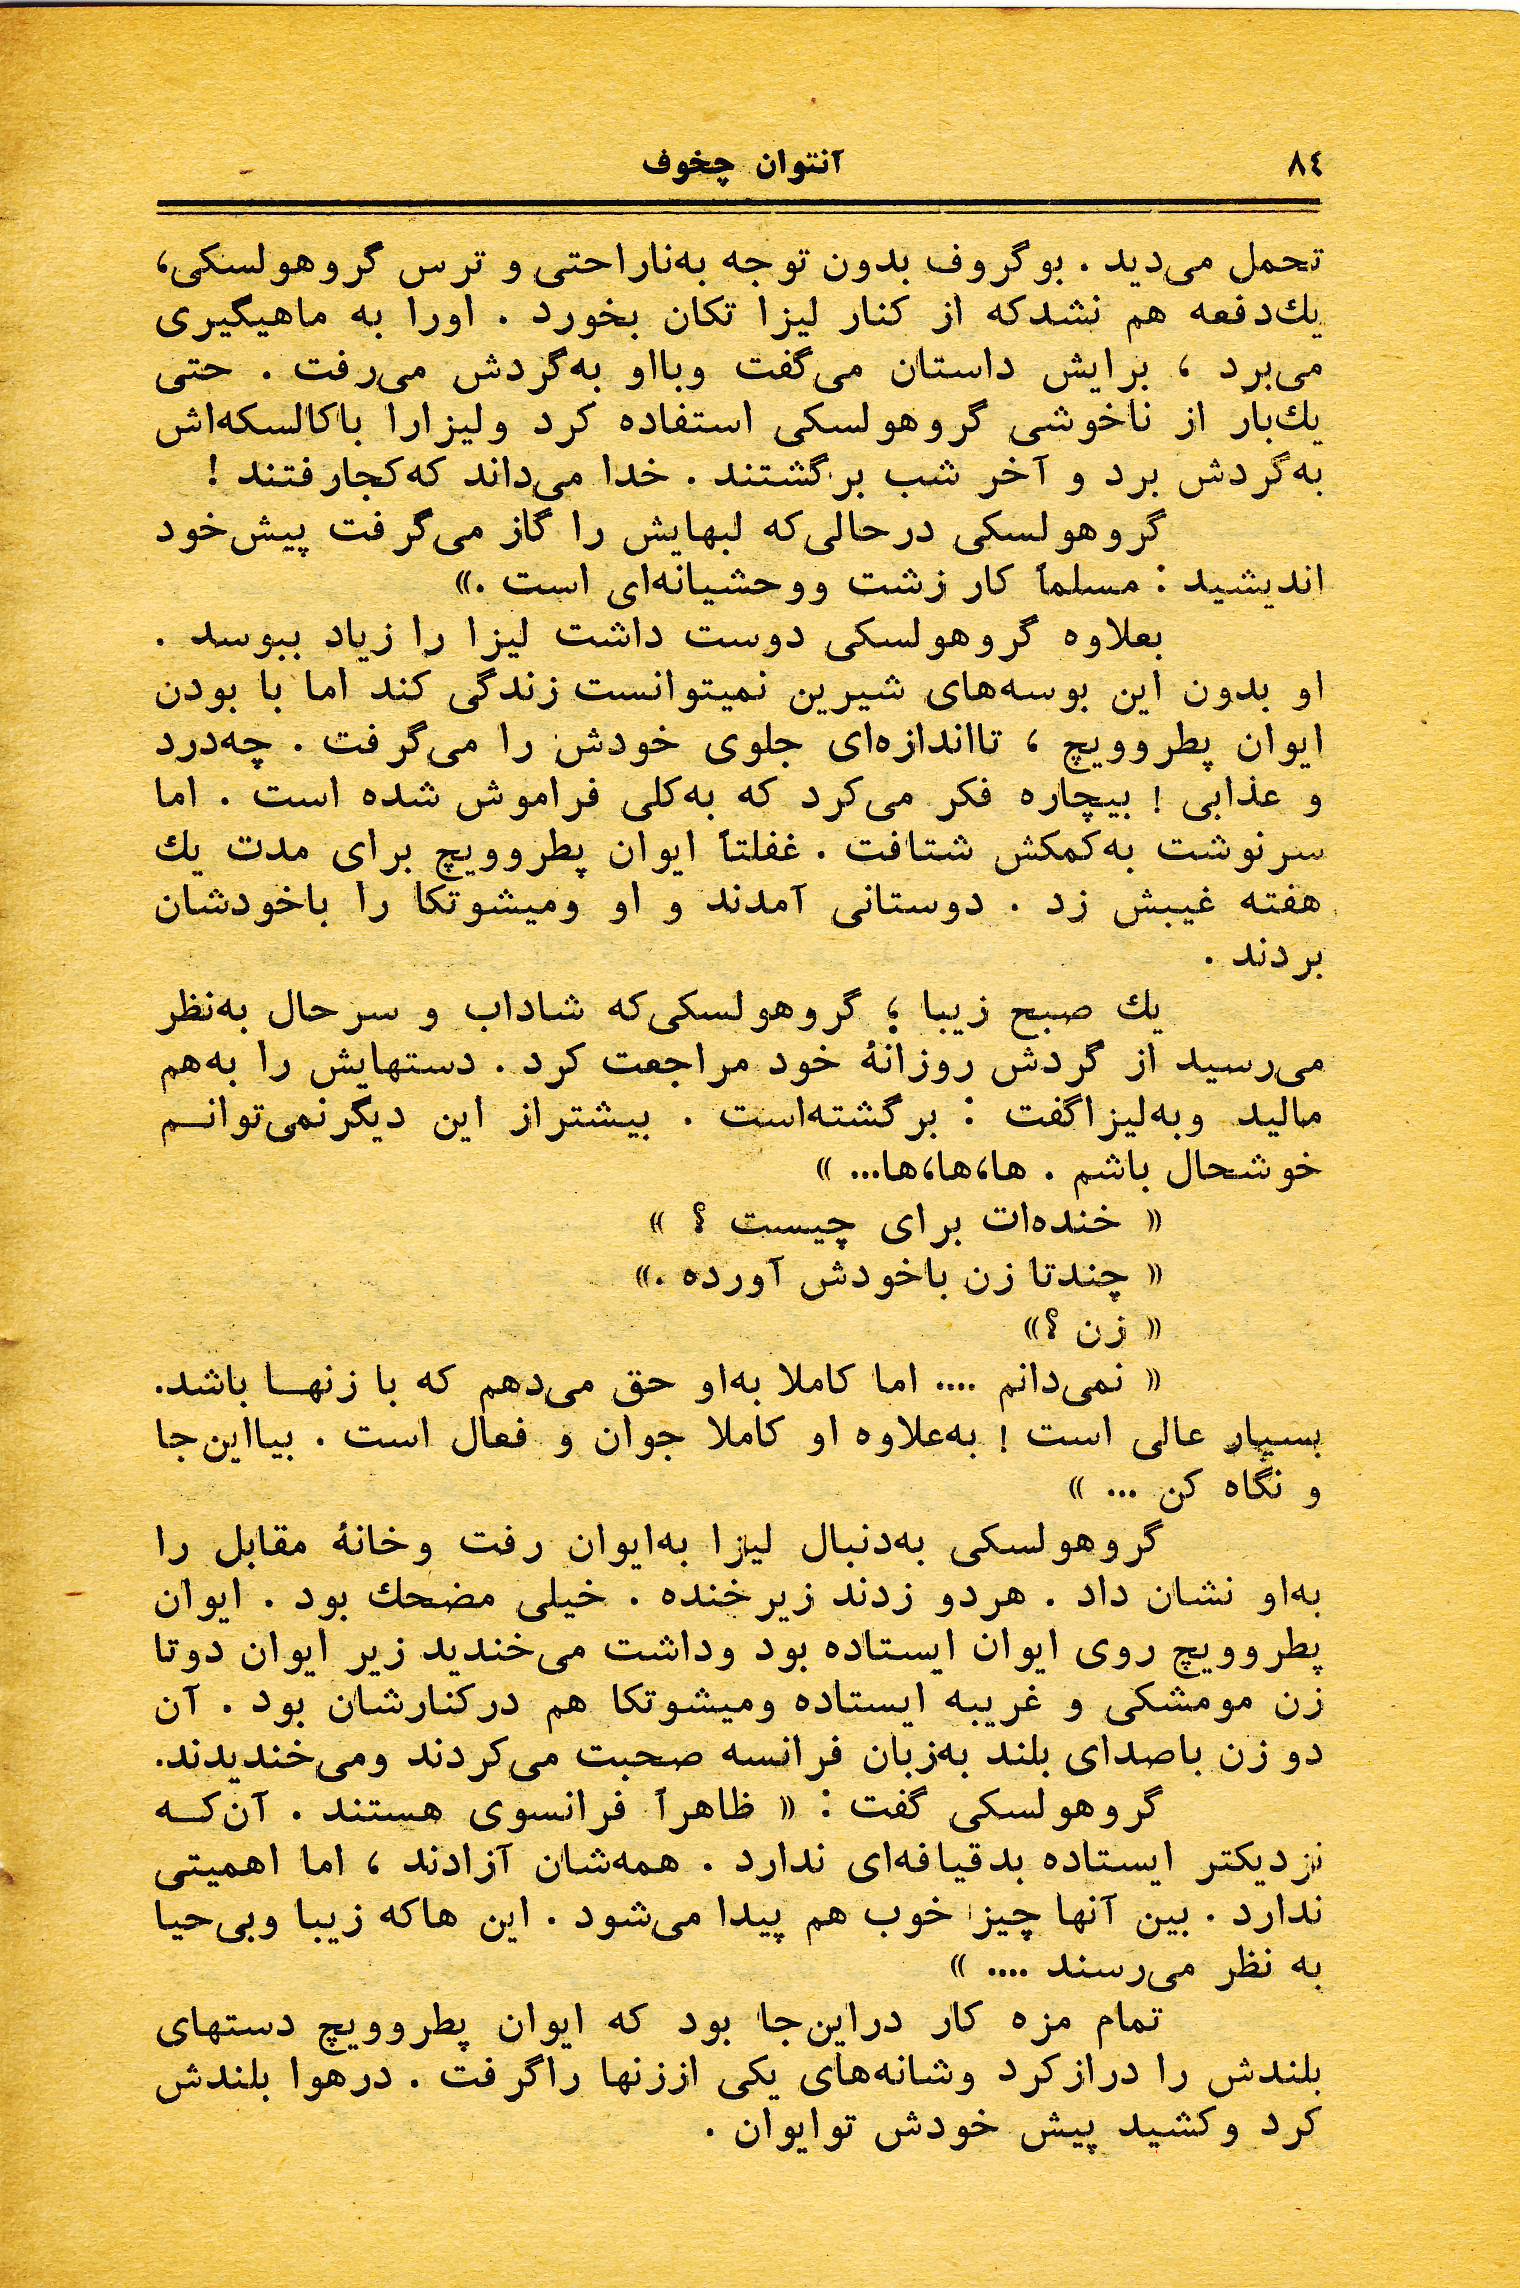 ٨٤
آنتوان چخوف
تحمل می‌دید . بوگروف بدون توجه به‌ناراحتی و ترس گروهولسکی،
یك‌دفعه هم نشدکه از کنار لیزا تکان بخورد . اورا به ماهیگیری
می‌برد ، برایش داستان می‌گفت وبااو به‌گردش می‌رفت . حتی
یك‌بار از ناخوشی گروهولسکی استفاده کرد ولیزارا باکالسکه‌اش
به‌گردش برد و آخر شب برگشتند . خدا می‌داند که‌کجارفتند !
گروهولسکی درحالی‌که لبهایش را گاز می‌گرفت پیش‌خود
اندیشید : مسلماً کار زشت ووحشیانه‌ای است .»
بعلاوه گروهولسکی دوست داشت لیزا را زیاد ببوسد .
او بدون این بوسه‌های شیرین نمیتوانست زندگی کند اما با بودن
ایوان پطروویچ ، تااندازه‌ای جلوی خودش را می‌گرفت . چه‌درد
و عذابی ! بیچاره فکر می‌کرد که به‌کلی فراموش شده است . اما
سرنوشت به‌کمکش شتافت . غفلتاً ایوان پطروویچ برای مدت یك
هفته غیبش زد . دوستانی آمدند و او ومیشوتکا را باخودشان
بردند .
یك صبح زیبا ؛ گروهولسکی‌که شاداب و سرحال به‌نظر
می‌رسید از گردش روزانهٔ خود مراجعت کرد . دستهایش را به‌هم
مالید وبه‌لیزاگفت : برگشته‌است . بیشتراز این دیگرنمی‌توانـم
خوشحال باشم . ها،ها،ها... »
« خنده‌ات برای چیست ؟ »
« چندتا زن باخودش آورده .»
« زن ؟»
« نمی‌دانم .... اما کاملا به‌او حق می‌دهم که با زنهـا باشد.
بسیار عالی است ! به‌علاوه او کاملا جوان و فعال است . بیااین‌جا
و نگاه کن ... »
گروهولسکی به‌دنبال لیزا به‌ایوان رفت وخانهٔ مقابل را
به‌او نشان داد . هردو زدند زیرخنده . خیلی مضحك بود . ایوان
پطروویچ روی ایوان ایستاده بود وداشت می‌خندید زیر ایوان دوتا
زن مومشکی و غریبه ایستاده ومیشوتکا هم درکنارشان بود . آن
دو زن باصدای بلند به‌زبان فرانسه صحبت می‌کردند ومی‌خندیدند.
گروهولسکی گفت : « ظاهراً فرانسوی هستند . آن‌کـه
نزدیکتر ایستاده بدقیافه‌ای ندارد . همه‌شان آزادند ، اما اهمیتی
ندارد . بین آنها چیز خوب هم پیدا می‌شود . این هاکه زیبا وبی‌حیا
به نظر می‌رسند .... »
تمام مزه کار دراین‌جا بود که ایوان پطروویچ دستهای
بلندش را درازکرد وشانه‌های یکی اززنها راگرفت . درهوا بلندش
کرد وکشید پیش خودش توایوان .